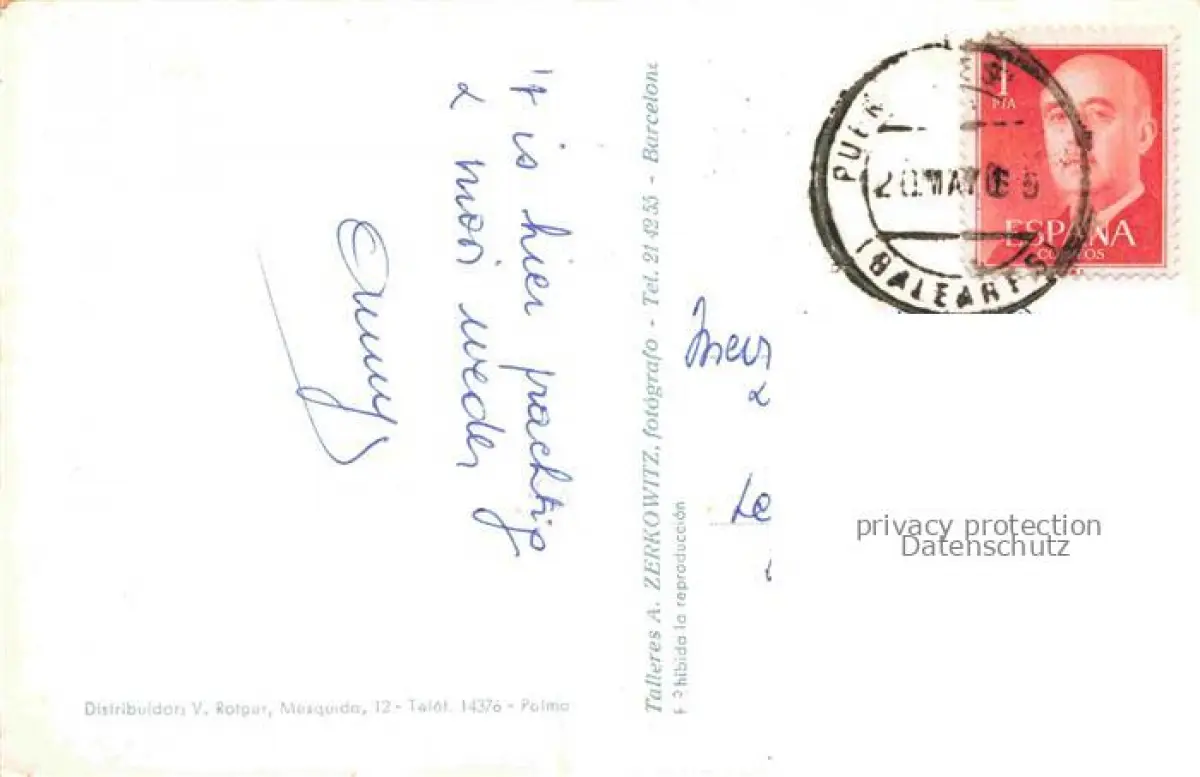 't is hier prachtig
& mooi weder
Anny
Talleres A. ZERKOWITZ, fotógrafo - Tel. 21 42 55 - Barcelona
hibida la reproducción
Distribuidor: V. Rotger, Mezquida, 12 - Teléf. 14376 - Palma
1
PTA
ESPAÑA
CORREOS
PUER
20 MAY 6 5
(BALEARES)
&
Le
privacy protection
Datenschutz